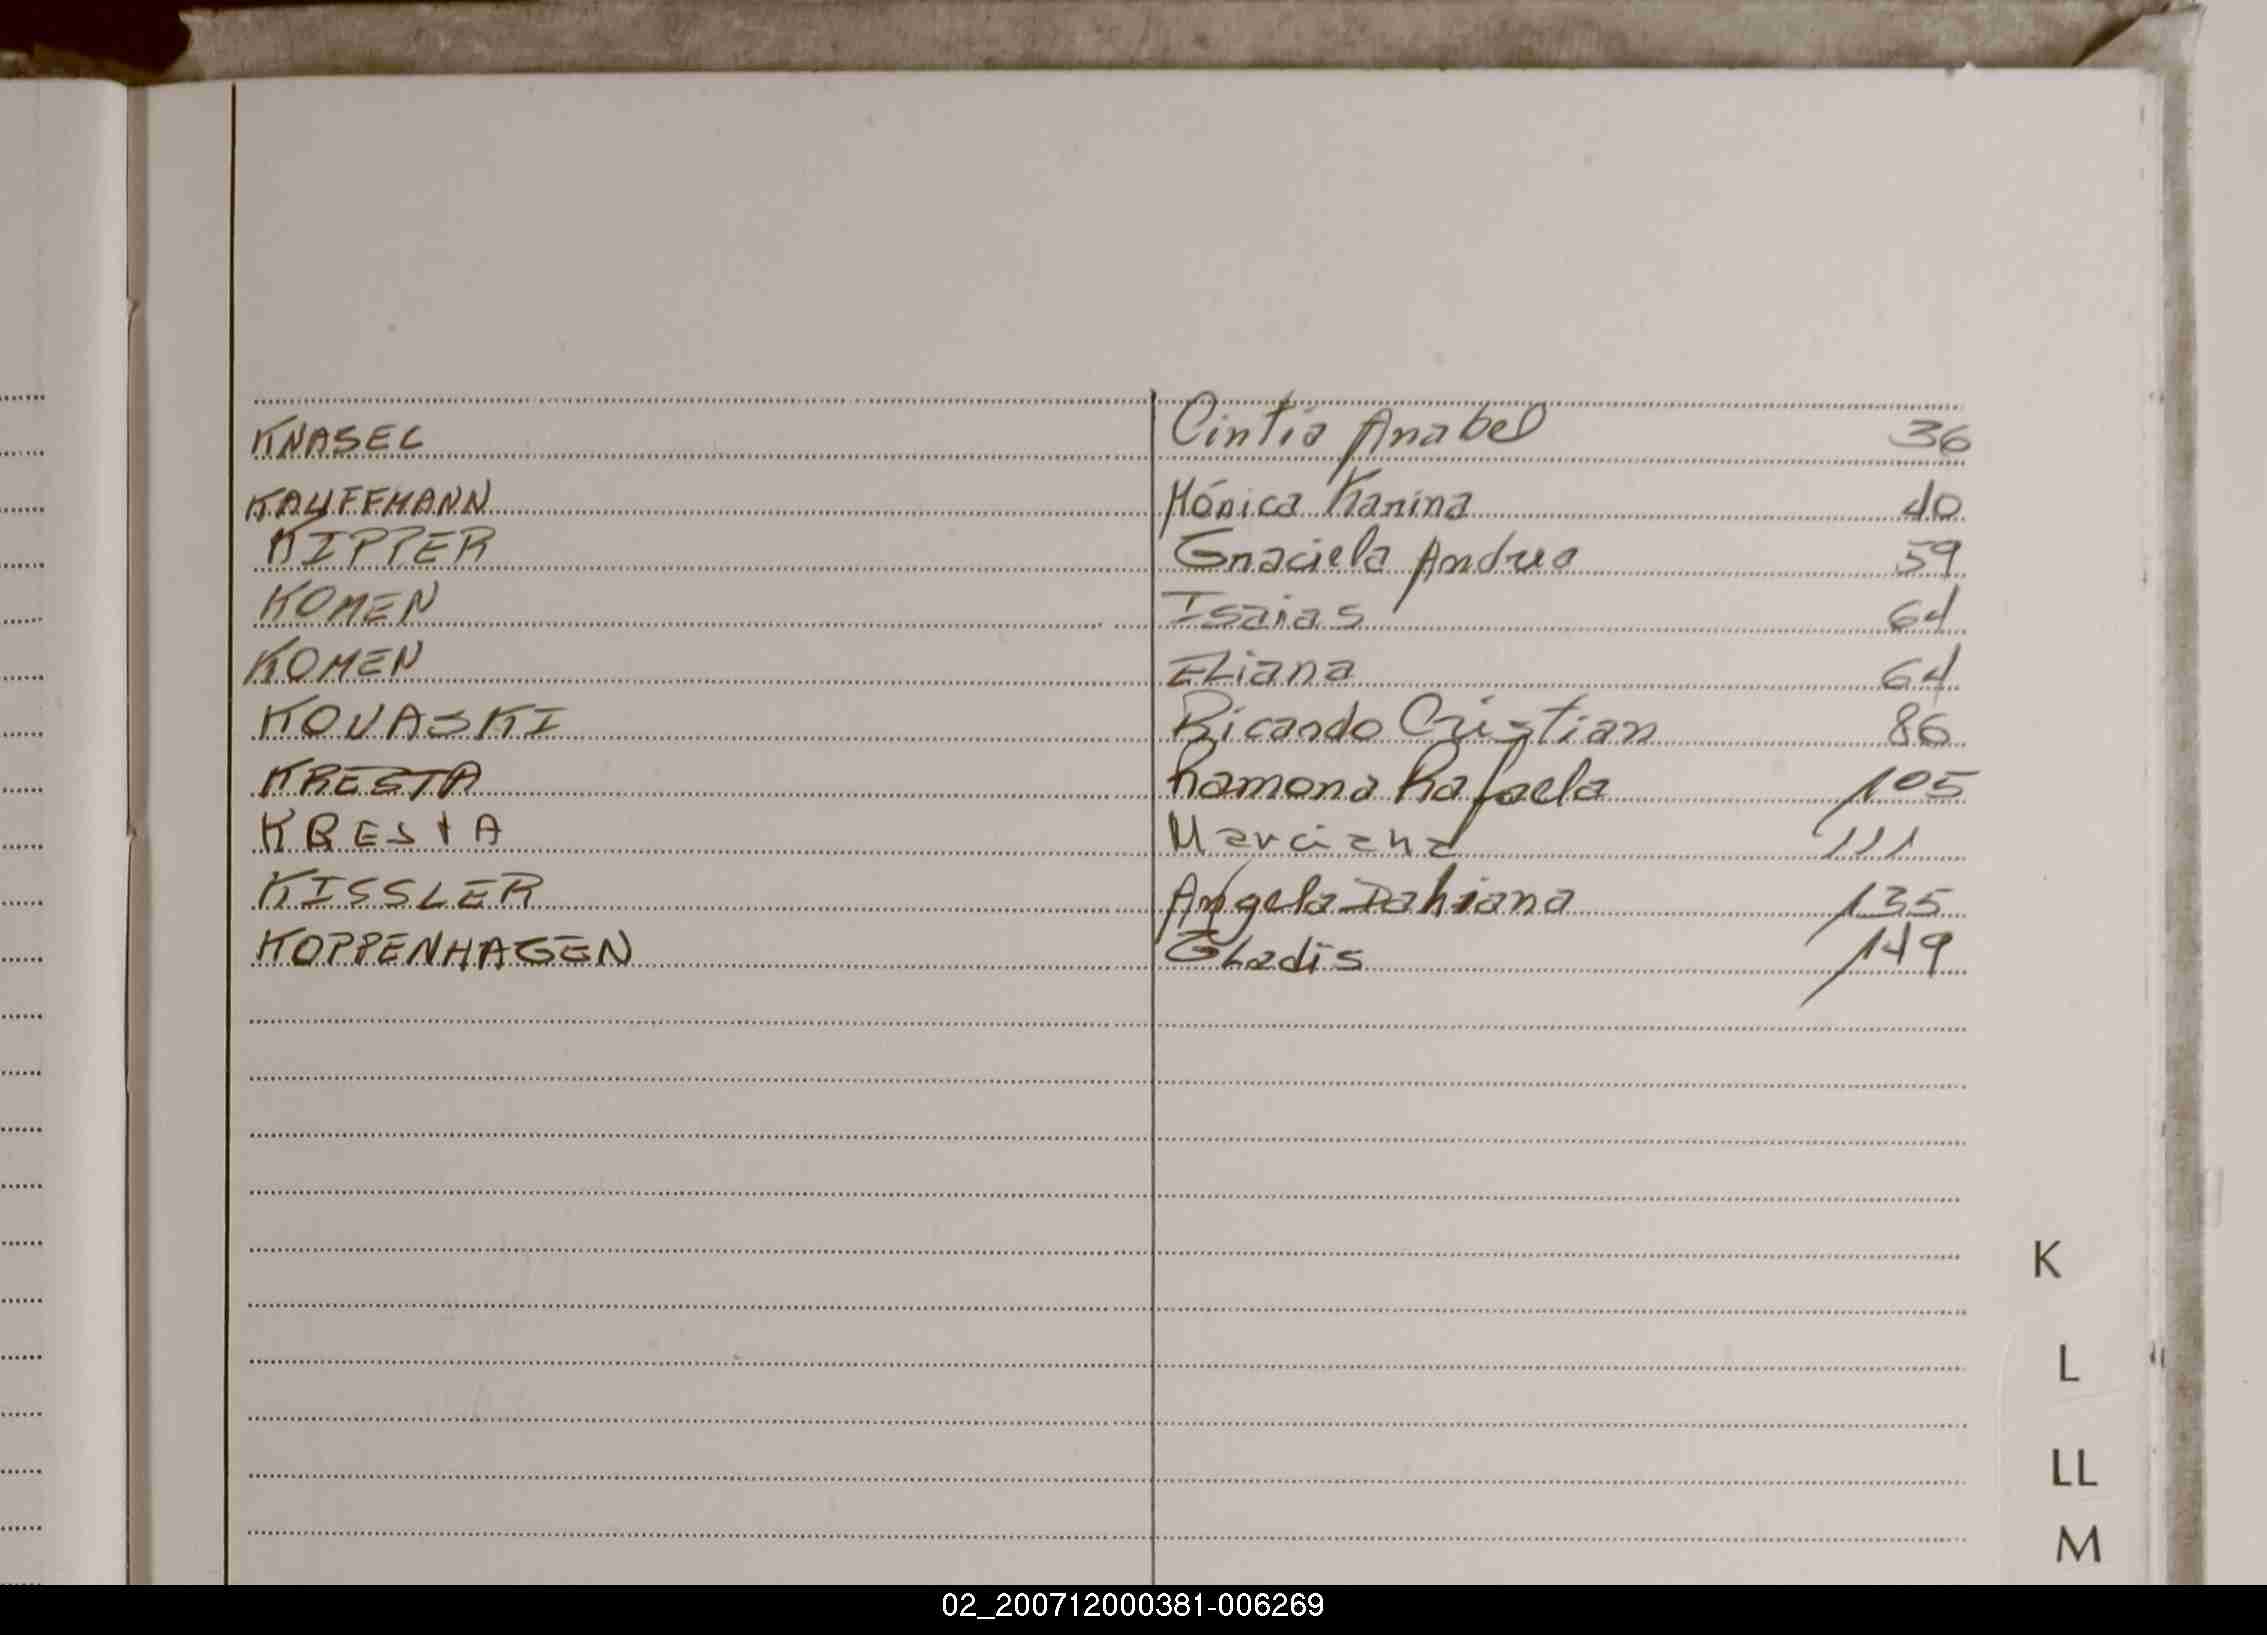 KNASEL Cintia Anabel 36
KAUFFMANN Mónica Karina 40
KIPPER Graciela Andrea 59
KOMEN Isaias 64
KOMEN Eliana 64
KOVASKI Ricardo Cristian 86
KRESTA Ramona Rafaela 105
KRESTA Marciana 111
KISSLER Angela Dahiana 135
KOPPENHAGEN Gladis 149
K
L
LL
M
02_200712000381-006269